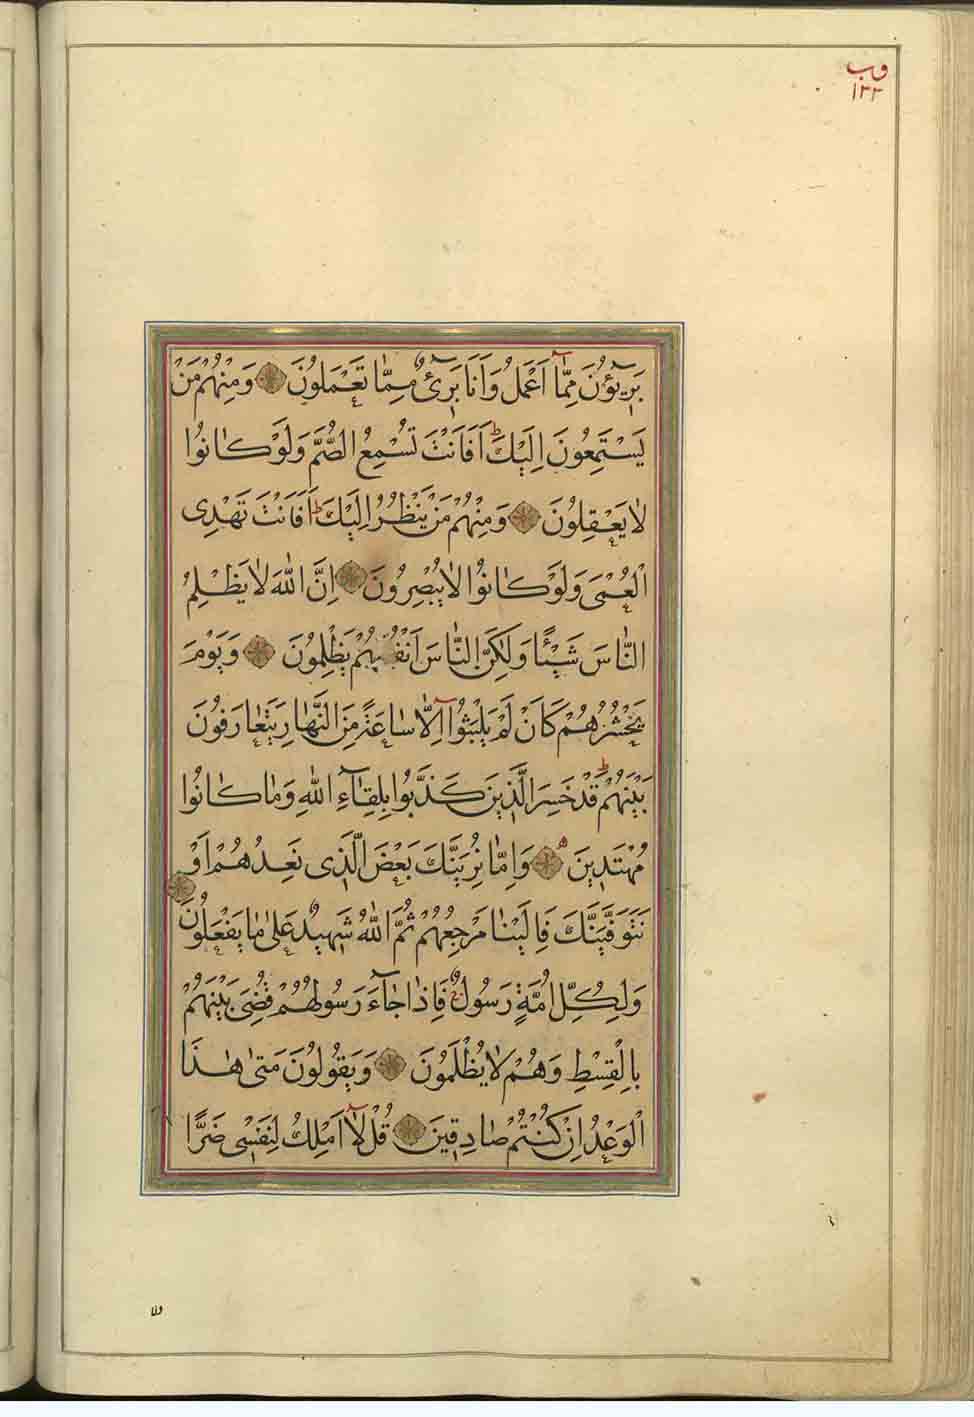 وب
١٣٣
بَرِيۤؤُنَ مِمَّاۤ اَعْمَلُ وَاَنَا بَرِىۤءٌ مِمَّا تَعْمَلُونَ وَمِنْهُمْ مَنْ
يَسْتَمِعُونَ اِلَيْكَ ط اَفَاَنْتَ تُسْمِعُ الصُّمَّ وَلَوْ كَانُوا
لَا يَعْقِلُونَ وَمِنْهُمْ مَنْ يَنْظُرُ اِلَيْكَ ط اَفَاَنْتَ تَهْدِى
الْعُمْىَ وَلَوْ كَانُوا لَا يُبْصِرُونَ اِنَّ اللّٰهَ لَا يَظْلِمُ
النَّاسَ شَيْئًا وَلٰكِنَّ النَّاسَ اَنْفُسَهُمْ يَظْلِمُونَ وَيَوْمَ
يَحْشُرُهُمْ كَاَنْ لَمْ يَلْبَثُوۤا اِلَّا سَاعَةً مِنَ النَّهَارِ يَتَعَارَفُونَ
بَيْنَهُمْ ط قَدْ خَسِرَ الَّذِينَ كَذَّبُوا بِلِقَاۤءِ اللّٰهِ وَمَا كَانُوا
مُهْتَدِينَ وَاِمَّا نُرِيَنَّكَ بَعْضَ الَّذِى نَعِدُهُمْ اَوْ
نَتَوَفَّيَنَّكَ فَاِلَيْنَا مَرْجِعُهُمْ ثُمَّ اللّٰهُ شَهِيدٌ عَلٰى مَا يَفْعَلُونَ
وَلِكُلِّ اُمَّةٍ رَسُولٌ فَاِذَا جَاۤءَ رَسُولُهُمْ قُضِىَ بَيْنَهُمْ
بِالْقِسْطِ وَهُمْ لَا يُظْلَمُونَ وَيَقُولُونَ مَتٰى هٰذَا
الْوَعْدُ اِنْ كُنْتُمْ صَادِقِينَ قُلْ لَاۤ اَمْلِكُ لِنَفْسِى ضَرًّا